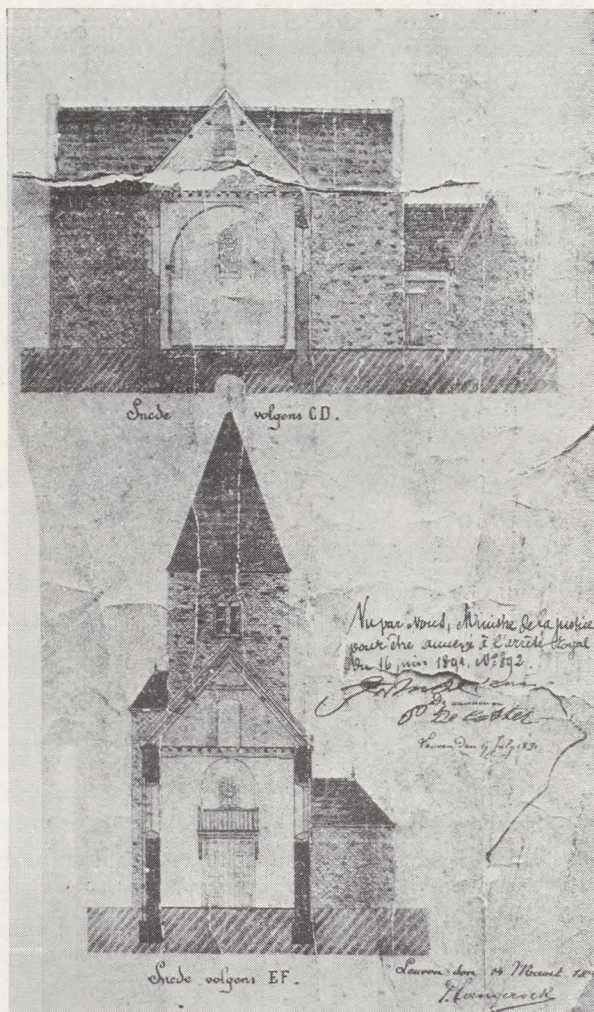 Snede volgens CD.
Vu par Nous, Ministre de la justice
pour être annexé à l'arrêté royal
du 16 juin 1891. N° 892.
De Coster
den 9 July 1891
Snede volgens EF.
Leuven den 14 Maart